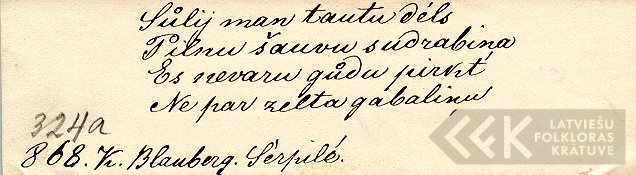 Sůlij man tautu déls
Pilnu šauvu sudrabiņa
Es nevaru gůdu pirkt
Ne par zelta gabaliņu
324a
868. K. Blauberg. Sērpilé.
LATVIEŠU
FOLKLORAS
KRĀTUVE